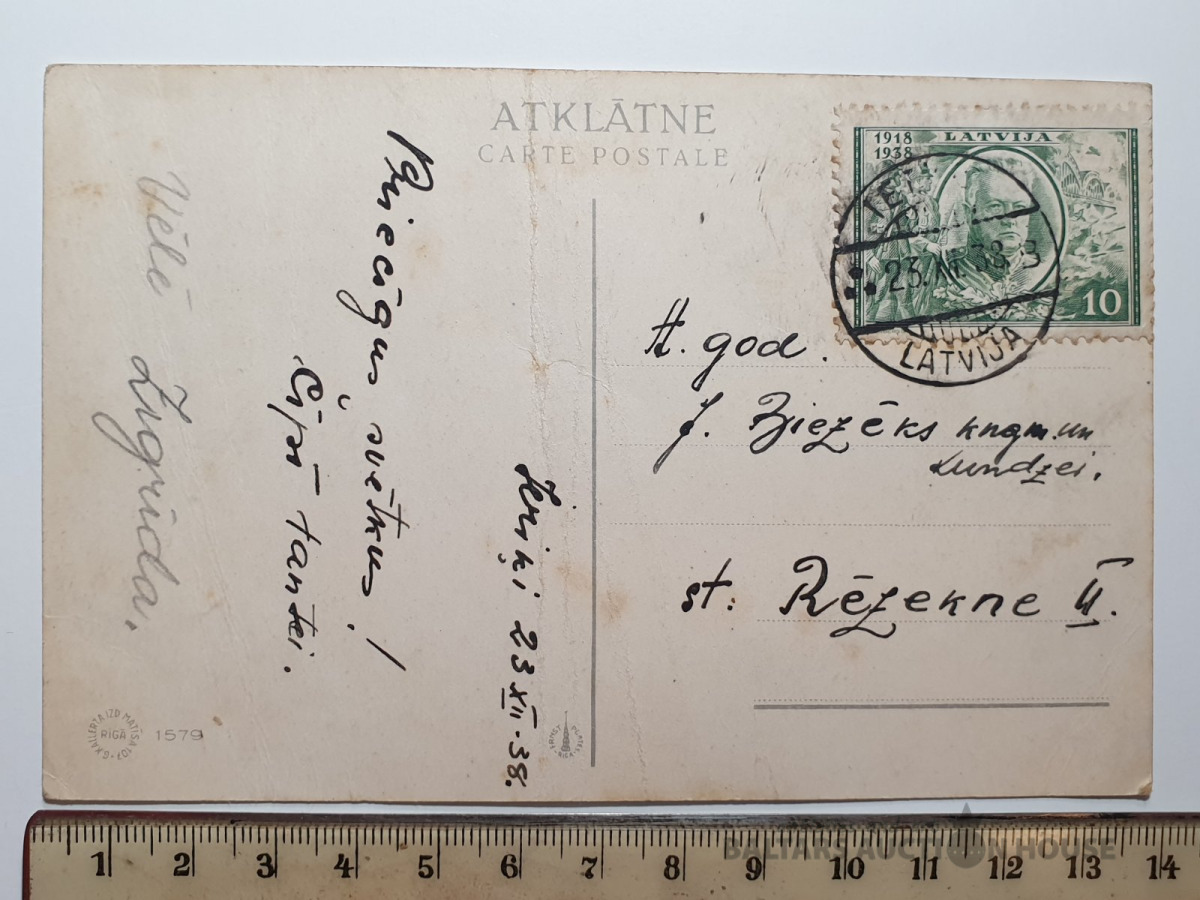 ATKLĀTNE
CARTE POSTALE
1918
1938
LATVIJA
10
23. XII 38 3
LATVIJA
Priecīgus svētkus!
Čipā tantei.
Vēlē Zigrīda.
23 XII - 38.
A. god.
J. Briezēks kngm. un
kundzei.
st. Rēzekne II.
G. KALLERTA IZD MATĪSA 107
RĪGĀ
1579
1 2 3 4 5 6 7 8 9 10 11 12 13 14
BALTARS AUCTION HOUSE